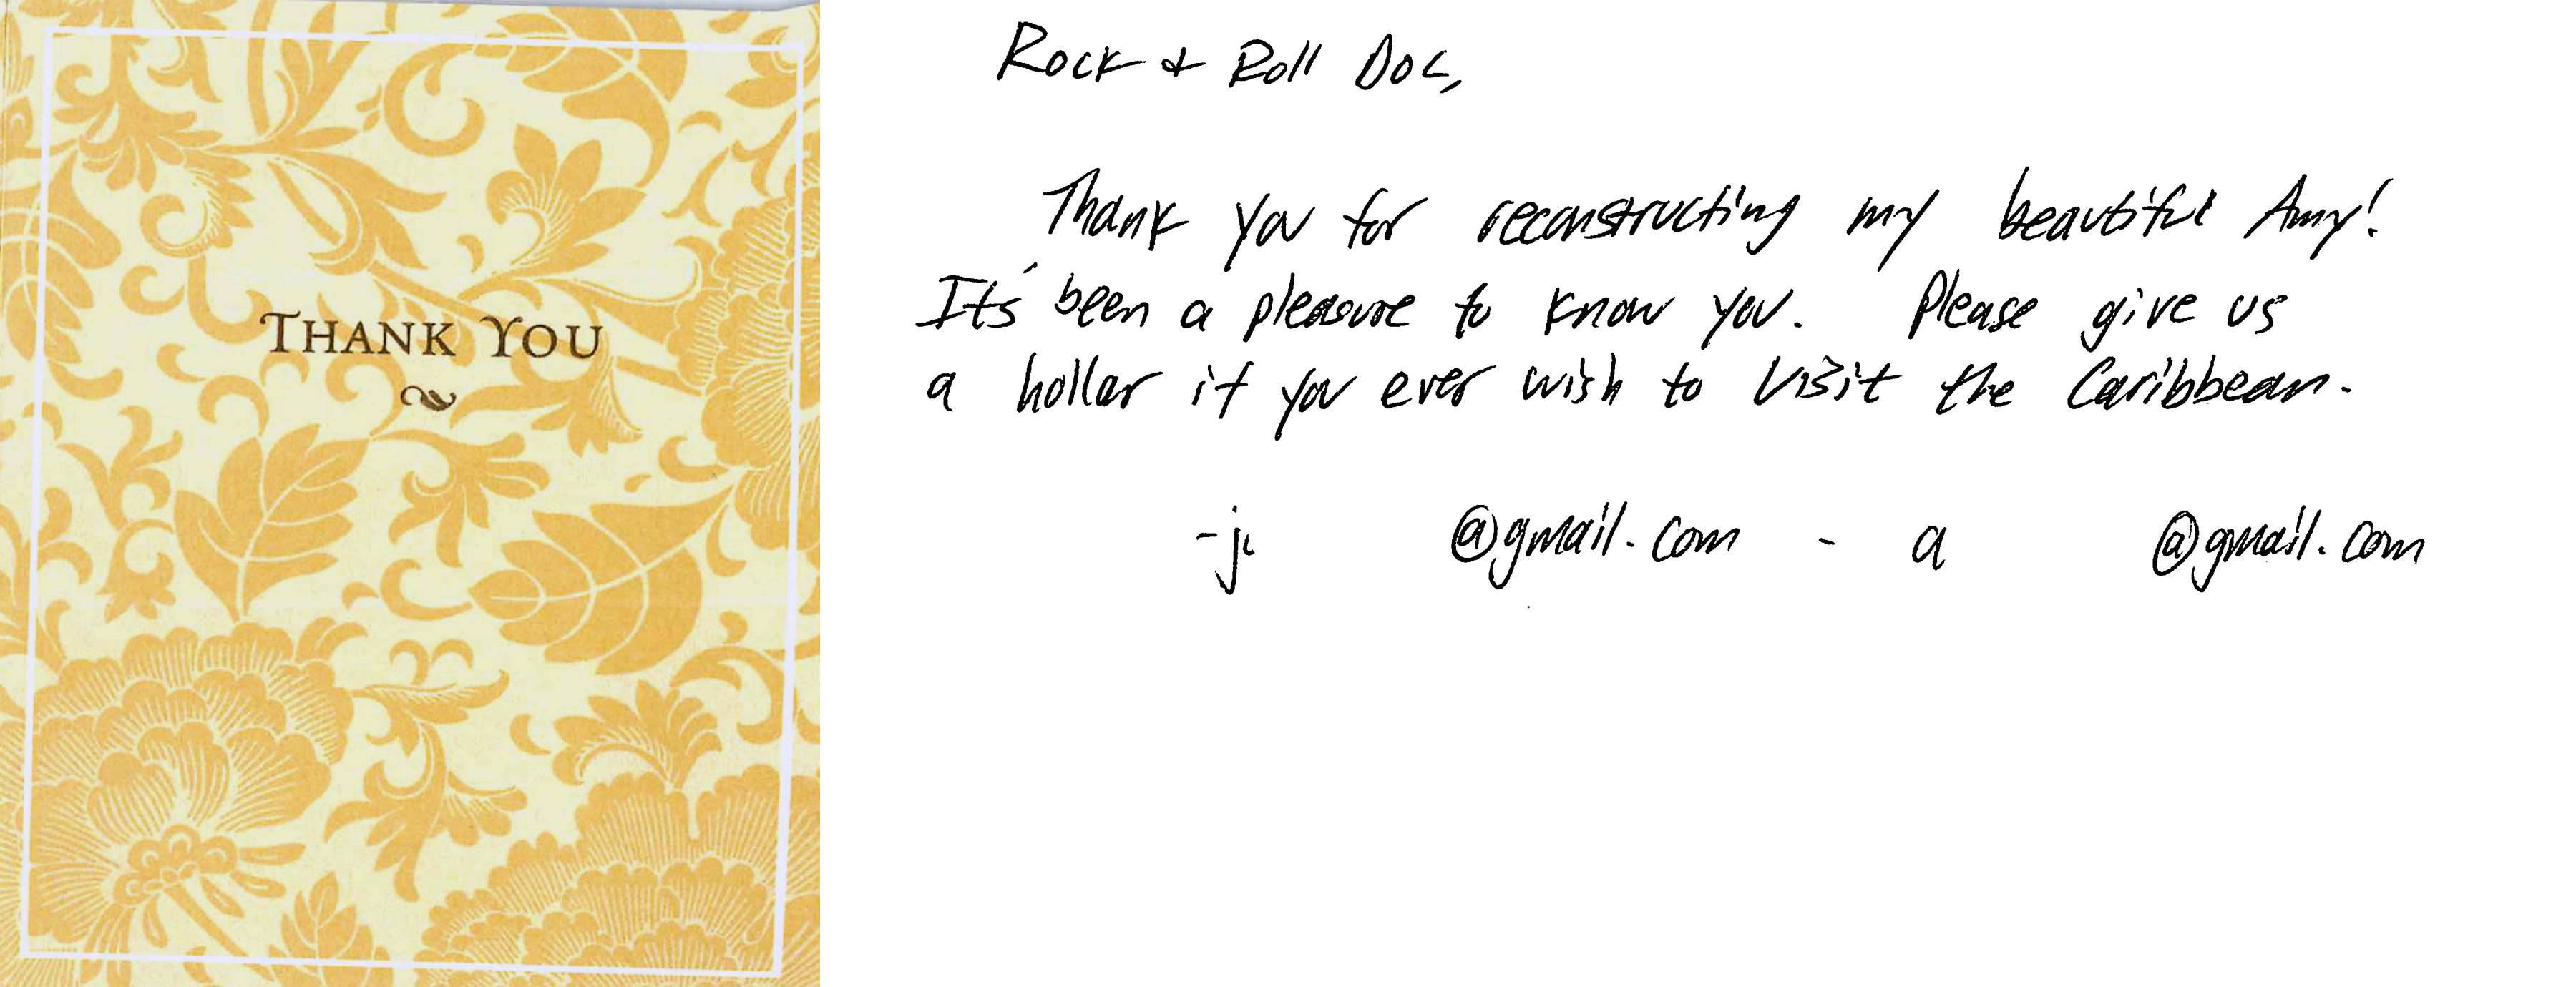 THANK YOU
Rock + Roll Doc,
Thank you for reconstructing my beautiful Amy!
It's been a pleasure to know you. Please give us
a hollar if you ever wish to visit the Caribbean.
-j @gmail.com - a @gmail.com